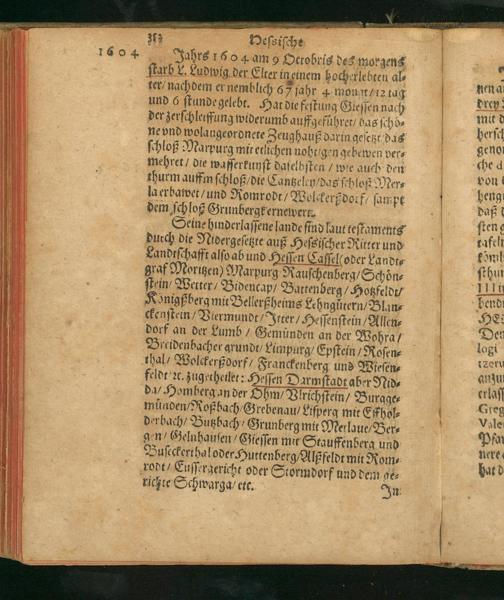 Hessische
1604
Jahrs 1604 am 9 Octobris des morgens
starb L. Ludwig der Elter in einem hocherlebten al-
ter/ nachdem er nemblich 67 jahr 4 monat/ 12 tag
und 6 stunde gelebt. Hat die festung Giessen nach
der zerschleiffung widerumb auffgeführet/ das schö-
ne und wolangeordnete Zeughauß darin gesetzt/ das
schloß Marpurg mit etlichen nohtigen gebewen ver-
mehret/ die wasserkunst daselbsten/ wie auch den
thurm auffm schloß/ die Cantzeley/ das schloß Mer-
la erbawet/ und Romrodt/ Wolckerßdorf/ sampt
dem schloß Grunbergk ernewert.
Seine hinderlassene lande sind laut testaments
durch die Nidergesetzte auß Hessischer Ritter und
Landschafft also ab und Hessen Cassel (oder Landt-
graf Moritzen) Marpurg Rauschenberg/ Schön-
stein/ Wetter/ Bidencap/ Battenberg/ Hotzfeldt/
Königßberg mit Bellerßheims Lehngütern/ Blan-
ckenstein/ Viermundt/ Itter/ Hessenstein/ Allen-
dorf an der Lumb/ Gemünden an der Wohra/
Breidenbacher grundt/ Limpurg/ Epstein/ Rosen-
thal/ Wolckerßdorf/ Franckenberg und Wiesen-
feldt ꝛc. zugetheilet: Hessen Darmstadt aber Nid-
da/ Homberg an der Ohm/ Ulrichstein/ Burgge-
münden/ Roßbach/ Grebenau/ Lisperg mit Effhol-
derbach/ Butzbach/ Grunberg mit Merlaue/ Ber-
gen/ Gelnhausen/ Giessen mit Stauffenberg und
Buseckerthal oder Huttenberg/ Alßfeldt mit Rom-
rodt/ Eussergericht oder Storndorf und dem ge-
richte Schwarga/ etc.
In